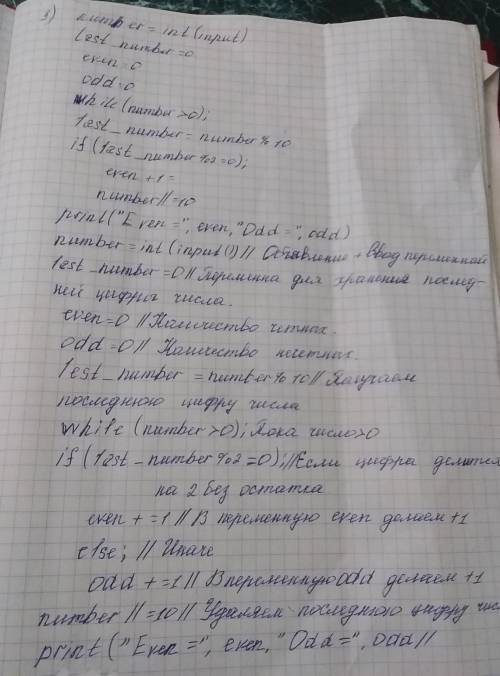 3) number = int(input)
last_number=0
even=0
odd=0
while(number>0);
last_number=number%10
if(last_number%2=0);
even+1=
number//=10
print("Even=", even,"Odd=", odd)
number=int(input()) // Объявление + Ввод переменной
last_number=0 // Переменна для хранения послед-
ней цифры числа.
even=0 // Количество четных.
odd=0 // Количество нечетных.
last_number = number%10 // Получаем
последнюю цифру числа
while (number>0); Пока число>0
if(last_number%2=0); // Если цифра делится
на 2 без остатка
even+=1 // В переменную even делаем +1
else; // Иначе
odd+=1 // В переменную odd делаем +1
number//=10 // Удаляем последнюю цифру чис
print("Even=", even, "Odd=", odd //